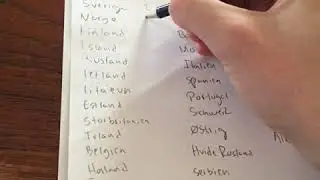 Sverige
Norge
Finland
Island
Rusland
Letland
Litauen
Estland
Storbritanien
Irland
Belgien
Holland
Italien
Spanien
Portugal
Schweiz
Østrig
Hvide Rusland
Serbien